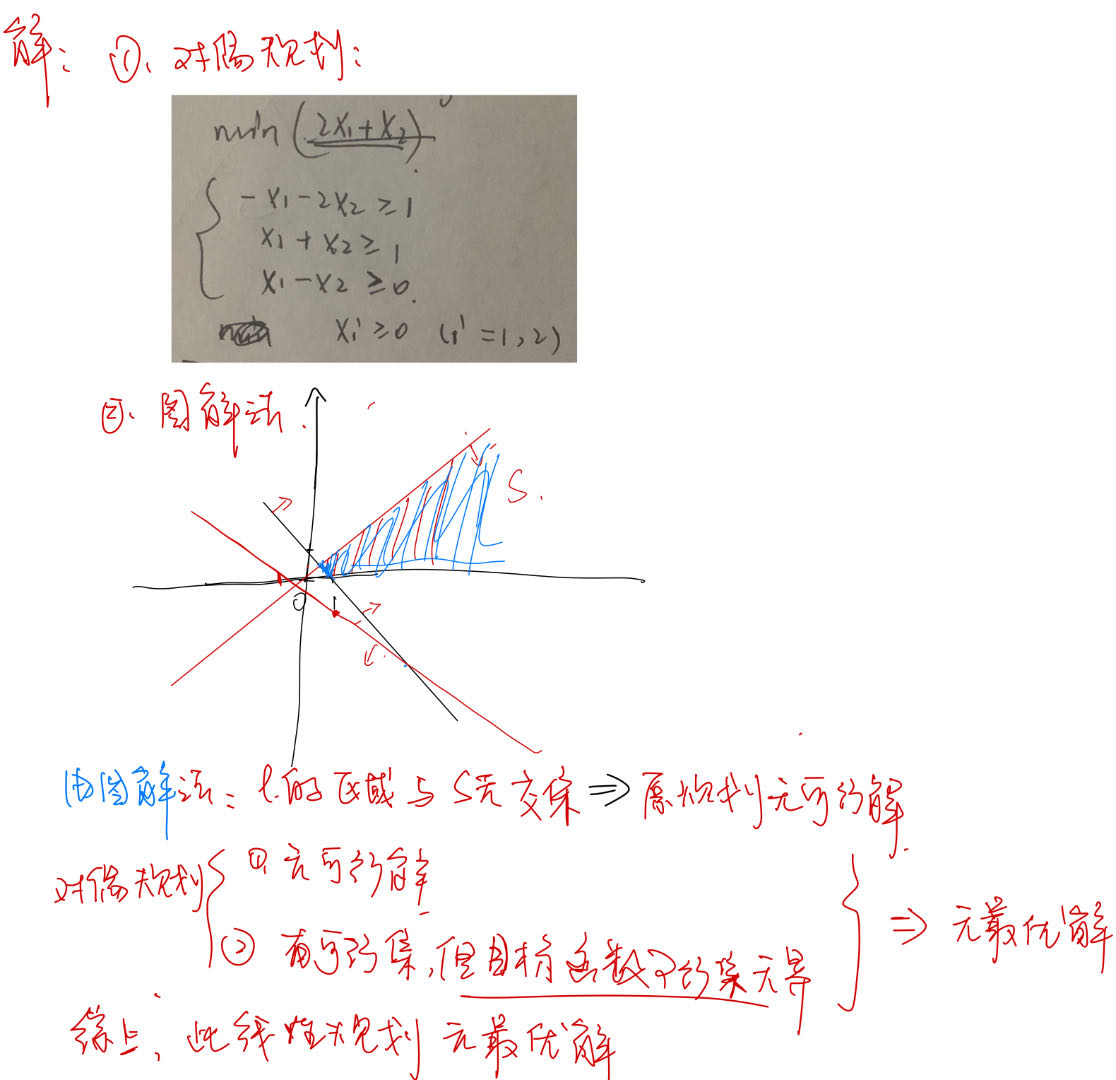 解: ①、对偶规划:
min (2x₁+x₂)
-x₁-2x₂≥1
x₁+x₂≥1
x₁-x₂≥0.
xi≥0 (i=1,2)
②、图解法.
S.
0 1
由图解法: l的区域与S无交集⇒原规划无可行解
对偶规划 ① 无可行解
② 有可行集,但目标函数可行集无界 ⇒ 无最优解
综上,此线性规划无最优解